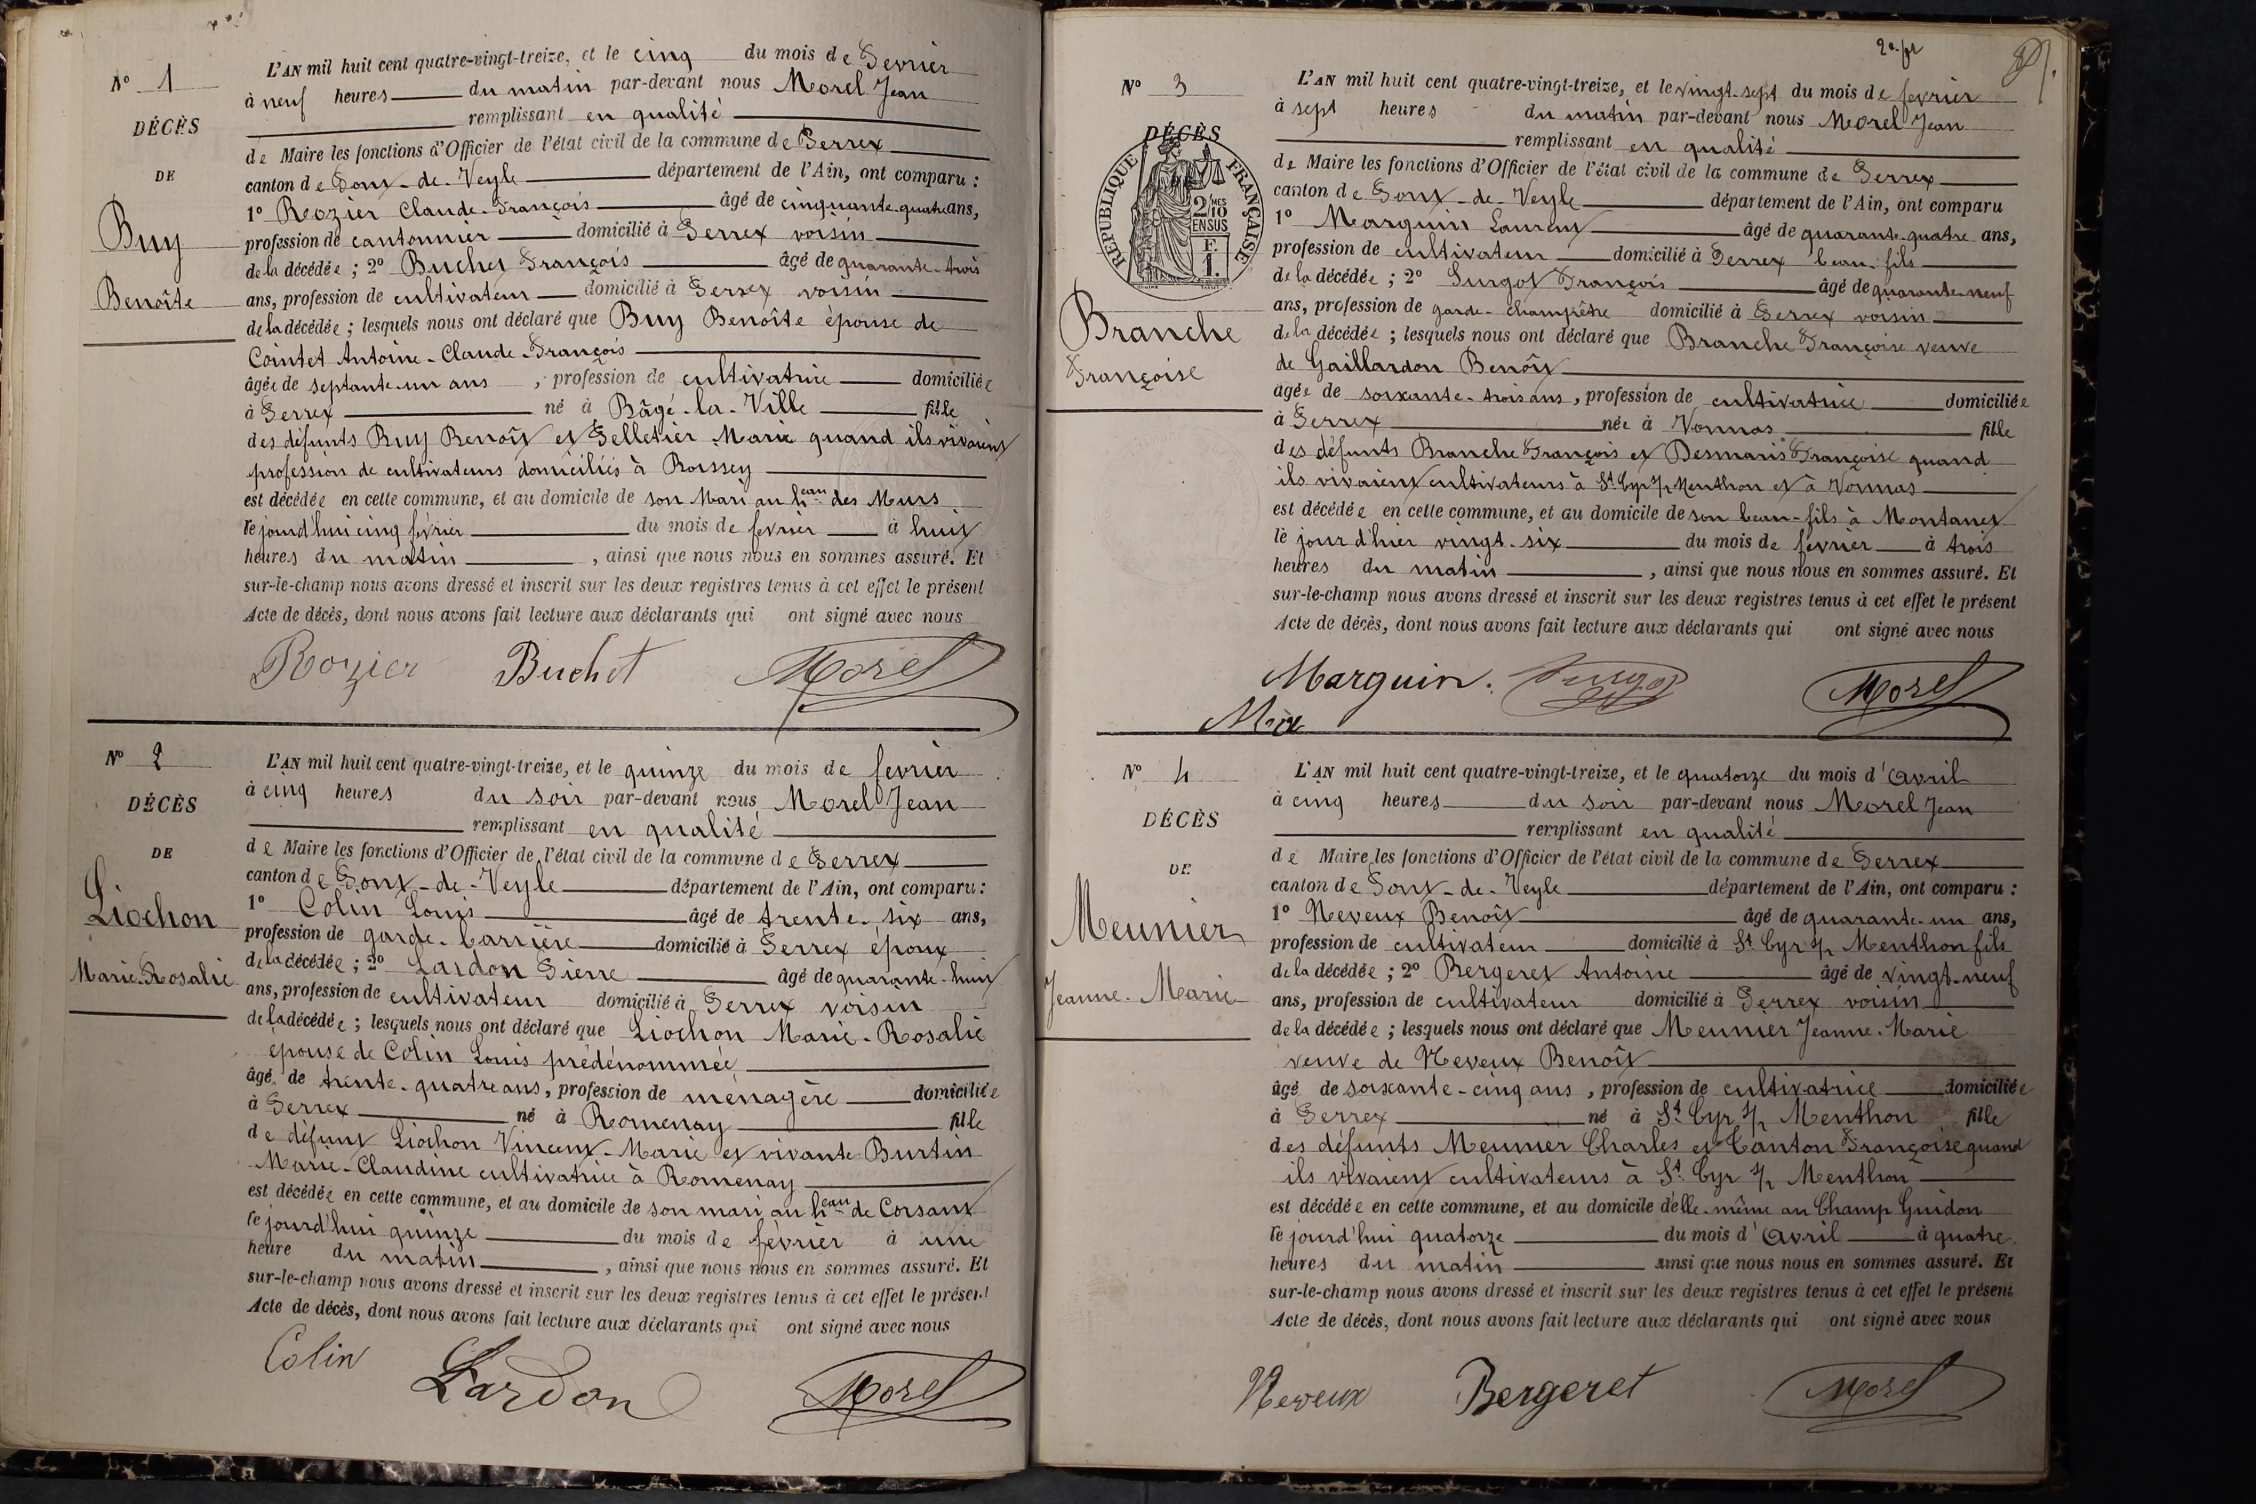 N° 1
DÉCÈS
DE
Buy
Benoîte
L'AN mil huit cent quatre-vingt-treize, et le cinq du mois de Fevrier
à neuf heures du matin par-devant nous Morel Jean
remplissant en qualité
de Maire les fonctions d'Officier de l'état civil de la commune de Perrex
canton de Pont-de-Veyle département de l'Ain, ont comparu :
1° Rozier Claude-François âgé de cinquante-quatre ans,
profession de cantonnier domicilié à Perrex voisin
de la décédée ; 2° Buchet François âgé de quarante-trois
ans, profession de cultivateur domicilié à Perrex voisin
de la décédée ; lesquels nous ont déclaré que Buy Benoîte épouse de
Cointet Antoine-Claude-François
âgée de septante-un ans, profession de cultivatrice domiciliée
à Perrex né à Bâgé-la-Ville fille
des défunts Buy Benoît et Pelletier Marie quand ils vivaient
profession de cultivateurs domiciliés à Boissey
est décédée en cette commune, et au domicile de son Mari au heau des Murs
le jourd'hui cinq février du mois de fevrier à huit
heures du matin, ainsi que nous nous en sommes assuré. Et
sur-le-champ nous avons dressé et inscrit sur les deux registres tenus à cet effet le présent
Acte de décès, dont nous avons fait lecture aux déclarants qui ont signé avec nous
Rozier Buchet Morel
N° 2
DÉCÈS
DE
Liochon
Marie-Rosalie
L'AN mil huit cent quatre-vingt-treize, et le quinze du mois de fevrier
à cinq heures du soir par-devant nous Morel Jean
remplissant en qualité
de Maire les fonctions d'Officier de l'état civil de la commune de Perrex
canton de Pont-de-Veyle département de l'Ain, ont comparu :
1° Colin Louis âgé de trente-six ans,
profession de garde-barrière domicilié à Perrex époux
de la décédée ; 2° Lardon Pierre âgé de quarante-huit
ans, profession de cultivateur domicilié à Perrex voisin
de la décédée ; lesquels nous ont déclaré que Liochon Marie-Rosalie
épouse de Colin Louis prédénommée
âgé de trente-quatre ans, profession de ménagère domiciliée
à Perrex né à Romenay fille
de défunt Liochon Vincent-Marie et vivante Burtin
Marie-Claudine cultivatrice à Romenay
est décédée en cette commune, et au domicile de son mari au heau de Corsant
le jourd'hui quinze du mois de février à une
heure du matin, ainsi que nous nous en sommes assuré. Et
sur-le-champ nous avons dressé et inscrit sur les deux registres tenus à cet effet le présent
Acte de décès, dont nous avons fait lecture aux déclarants qui ont signé avec nous
Colin Lardon Morel
N° 3
DÉCÈS
RÉPUBLIQUE FRANÇAISE
2/10 MES
EN SUS
F.
1.
Branche
Françoise
L'AN mil huit cent quatre-vingt-treize, et le vingt-sept du mois de fevrier
à sept heures du matin par-devant nous Morel Jean
remplissant en qualité
de Maire les fonctions d'Officier de l'état civil de la commune de Perrex
canton de Pont-de-Veyle département de l'Ain, ont comparu
1° Marguin Laurent âgé de quarante-quatre ans,
profession de cultivateur domicilié à Perrex beau-fils
de la décédée ; 2° Surgot François âgé de quarante-neuf
ans, profession de garde-champêtre domicilié à Perrex voisin
de la décédée ; lesquels nous ont déclaré que Branche Françoise veuve
de Gaillardon Benoît
âgée de soixante-trois ans, profession de cultivatrice domiciliée
à Perrex née à Vonnas fille
des défunts Branche François et Desmaris Françoise quand
ils vivaient cultivateurs à St Cyr s/ Menthon et à Vonnas
est décédée en cette commune, et au domicile de son beau-fils à Montanet
le jour d'hier vingt-six du mois de fevrier à trois
heures du matin, ainsi que nous nous en sommes assuré. Et
sur-le-champ nous avons dressé et inscrit sur les deux registres tenus à cet effet le présent
Acte de décès, dont nous avons fait lecture aux déclarants qui ont signé avec nous
Marguin. Surgot Morel
N° 4
DÉCÈS
DE
Meunier
Jeanne-Marie
L'AN mil huit cent quatre-vingt-treize, et le quatorze du mois d'Avril
à cinq heures du soir par-devant nous Morel Jean
remplissant en qualité
de Maire les fonctions d'Officier de l'état civil de la commune de Perrex
canton de Pont-de-Veyle département de l'Ain, ont comparu :
1° Neveux Benoît âgé de quarante-un ans,
profession de cultivateur domicilié à St Cyr s/ Menthon fils
de la décédée ; 2° Bergeret Antoine âgé de vingt-neuf
ans, profession de cultivateur domicilié à Perrex voisin
de la décédée ; lesquels nous ont déclaré que Meunier Jeanne-Marie
veuve de Neveux Benoît
âgé de soixante-cinq ans, profession de cultivatrice domiciliée
à Perrex né à St Cyr s/ Menthon fille
des défunts Meunier Charles et Canton Françoise quand
ils vivaient cultivateurs à St Cyr s/ Menthon
est décédée en cette commune, et au domicile d'elle-même au Champ Guidon
le jourd'hui quatorze du mois d'Avril à quatre
heures du matin ainsi que nous nous en sommes assuré. Et
sur-le-champ nous avons dressé et inscrit sur les deux registres tenus à cet effet le présent
Acte de décès, dont nous avons fait lecture aux déclarants qui ont signé avec nous
Neveux Bergeret Morel